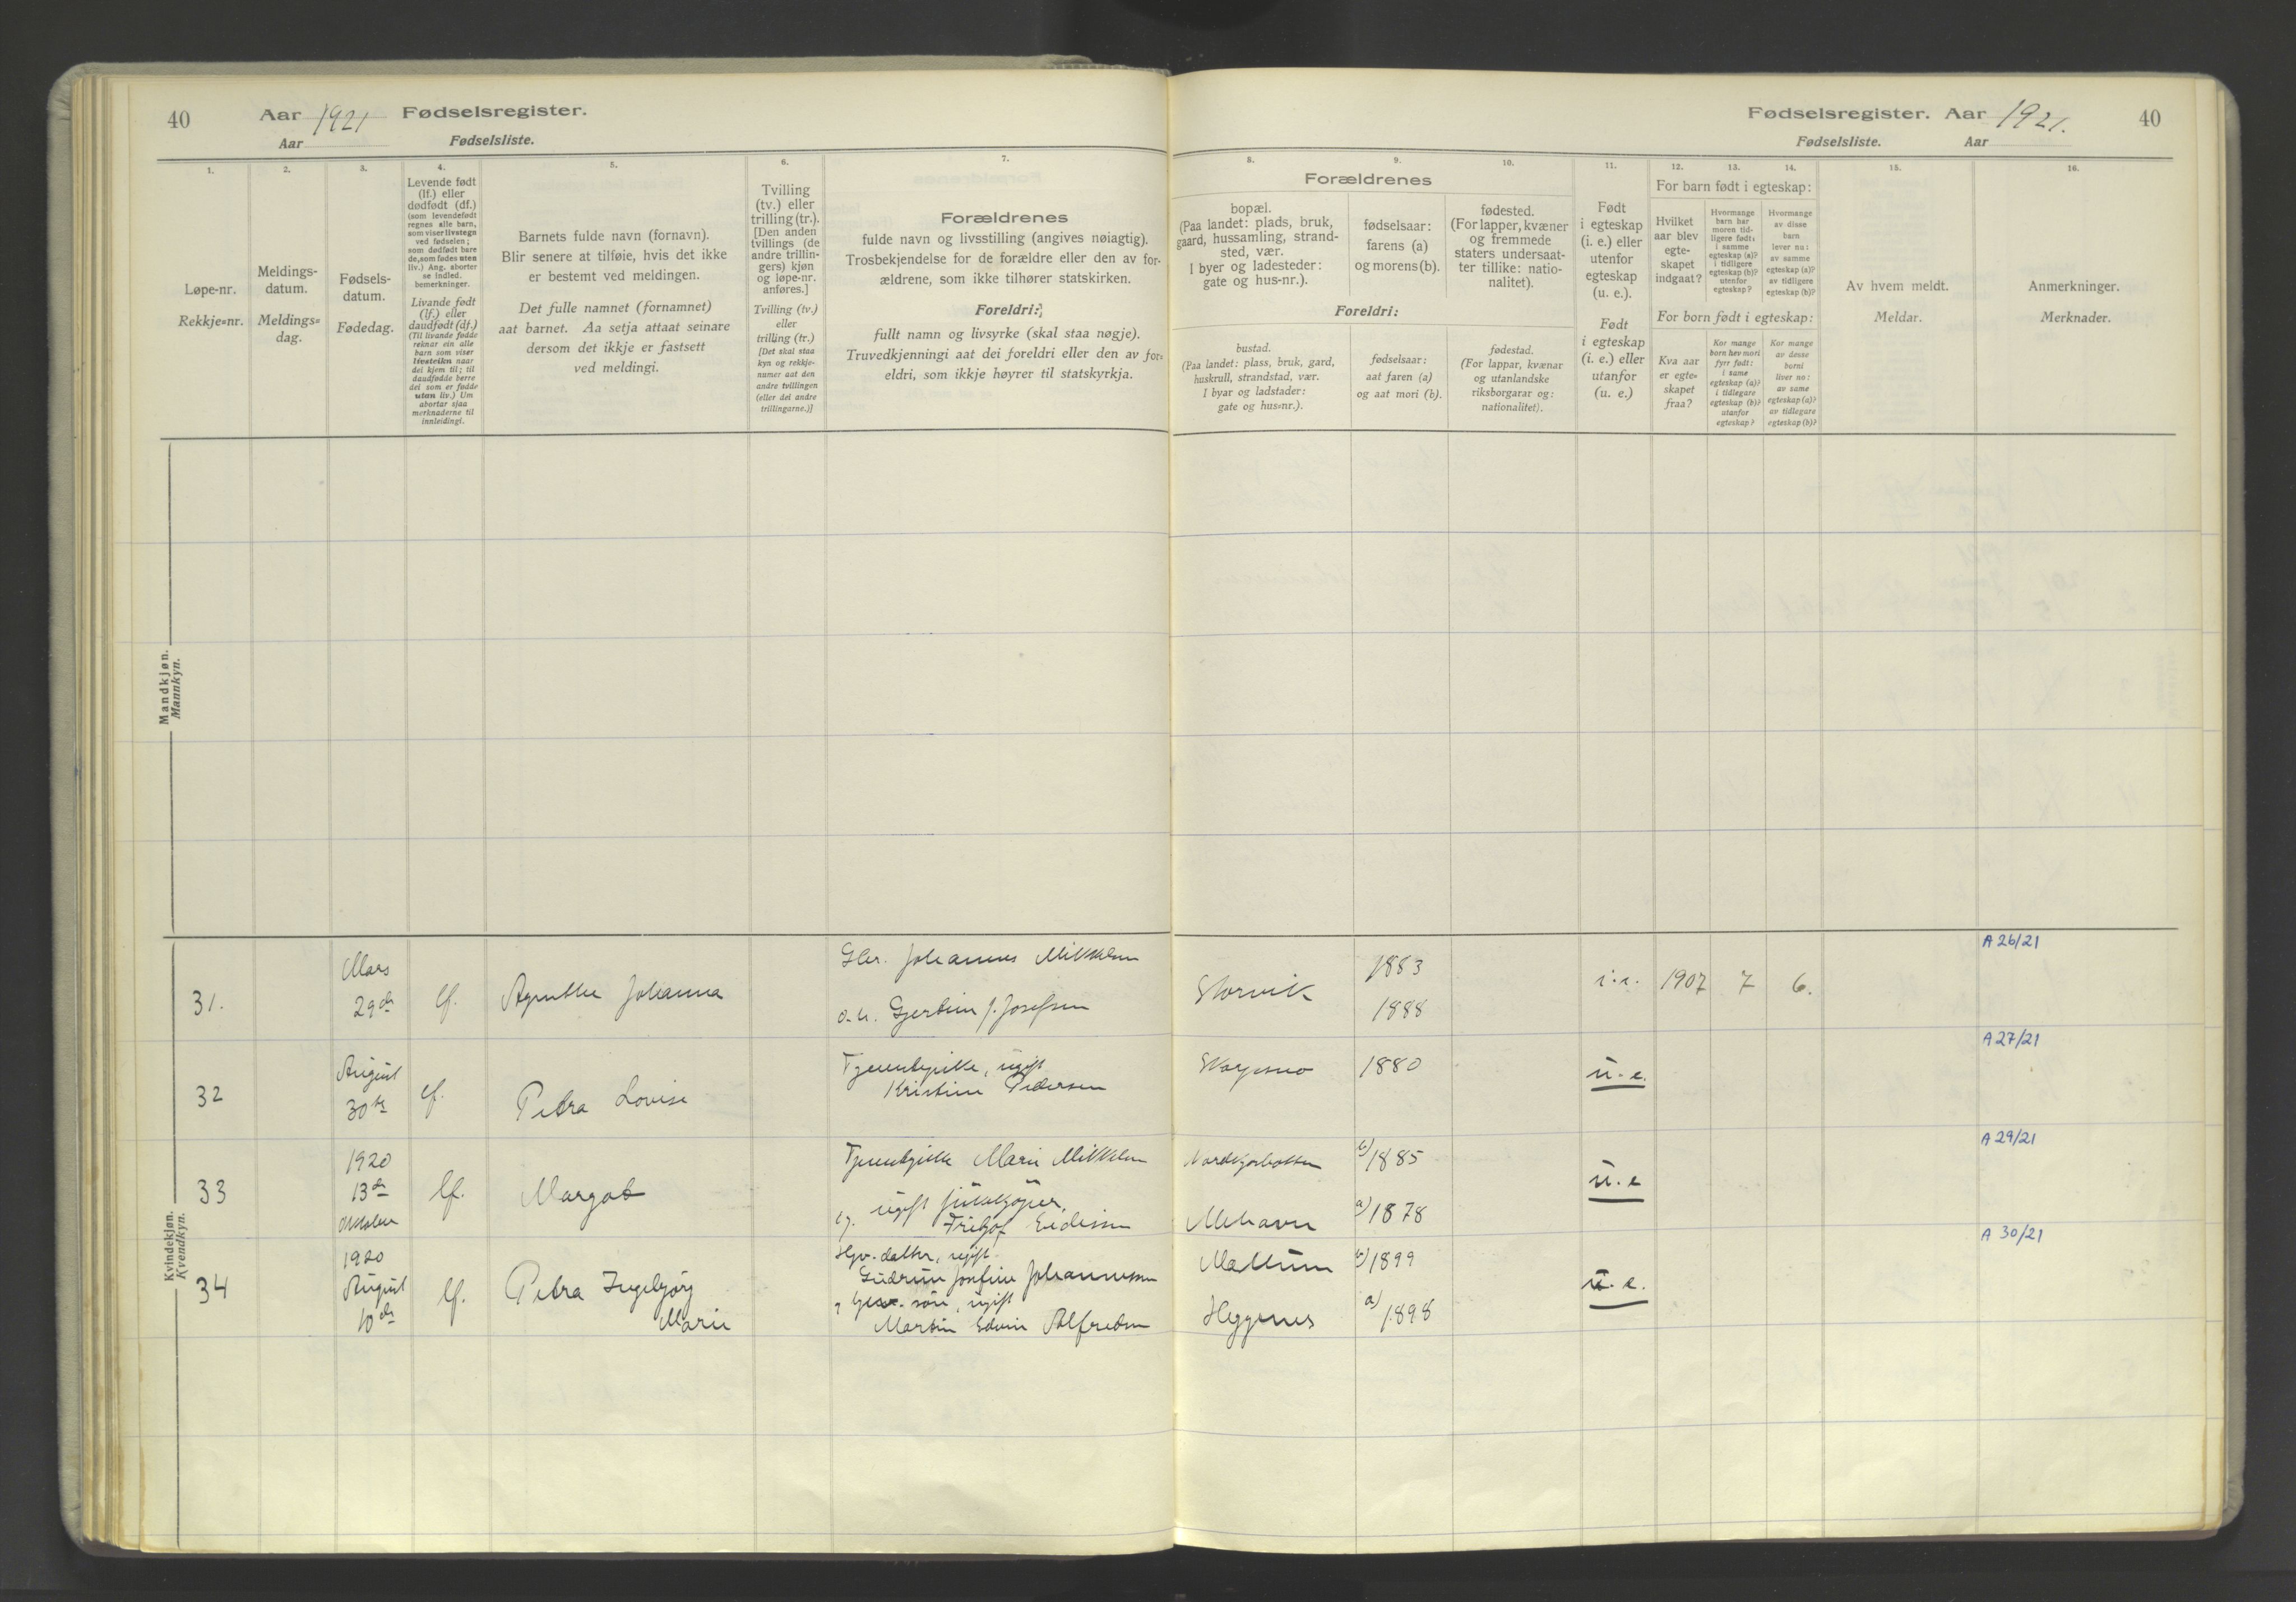 40
Aar 1921 Fødselsregister.
Aar Fødselsliste.
1.
Løpe-nr.
Rekkje-nr.
2.
Meldings-
datum.
Meldings-
dag.
3.
Fødsels-
datum.
Fødedag.
4.
Levende født
(lf.) eller
dødfødt (df.)
(som levendefødt
regnes alle barn,
som viser livstegn
ved fødselen;
som dødfødt bare
de, som fødes uten
liv.) Ang. aborter
se indled.
bemerkninger.
Livande født
(lf.) eller
daudfødt (df.)
(Til livande fødde
reknar ein alle
barn som viser
livsteikn naar
dei kjem til; til
daudfødde berre
dei som er fødde
utan liv.) Um
abortar sjaa
merknaderne til
innleidingi.
5.
Barnets fulde navn (fornavn).
Blir senere at tilføie, hvis det ikke
er bestemt ved meldingen.
Det fulle namnet (fornamnet)
aat barnet. Aa setja attaat seinare
dersom det ikkje er fastsett
ved meldingi.
6.
Tvilling
(tv.) eller
trilling (tr.).
[Den anden
tvillings (de
andre trillin-
gers) kjøn
og løpe-nr.
anføres.]
Tvilling (tv.)
eller
trilling (tr.)
[Det skal staa
kyn og rekkje-
numer aat den
andre tvillingen
(eller dei andre
trillingarne.)]
7.
Forældrenes
fulde navn og livsstilling (angives nøiagtig).
Trosbekjendelse for de forældre eller den av for-
ældrene, som ikke tilhører statskirken.
Foreldri:
fullt namn og livsyrke (skal staa nøgje).
Truvedkjenningi aat dei foreldri eller den av for-
eldri, som ikkje høyrer til statskyrkja.
Fødselsregister. Aar 1921. 40
Fødselsliste. Aar
Forældrenes
8.
bopæl.
(Paa landet: plads, bruk,
gaard, hussamling, strand-
sted, vær.
I byer og ladesteder:
gate og hus-nr.).
9.
fødselsaar:
farens (a)
og morens (b).
10.
fødested.
(For lapper, kvæner
og fremmede
staters undersaat-
ter tillike: natio-
nalitet).
Foreldri:
bustad.
(Paa landet: plass, bruk, gard,
huskrull, strandstad, vær.
I byar og ladstader:
gate og hus-nr.).
fødselsaar:
aat faren (a)
og aat mori (b).
fødestad.
(For lappar, kvænar
og utanlandske
riksborgarar og:
nationalitet).
11.
Født
i egteskap
(i. e.) eller
utenfor
egteskap
(u. e.).
Født
i egteskap
(i. e.) eller
utanfor
(u. e.)
For barn født i egteskap:
12.
Hvilket
aar blev
egte-
skapet
indgaat?
13.
Hvormange
barn har
moren tid-
ligere født:
i samme
egteskap (a)?
i tidligere
egteskap (b)?
utenfor
egteskap?
14.
Hvormange
av disse
barn
lever nu:
av samme
egteskap (a)?
av tidligere
egteskap (b)?
For born født i egteskap:
Kva aar
er egte-
skapet
fraa?
Kor mange
born hev mori
fyrr født:
i same
egteskap (a)?
i tidlegare
egteskap (b)?
utanfor
egteskap?
Kor mange
av desse
borni
liver no:
av same
egteskap (a)?
av tidlegare
egteskap (b)?
15.
Av hvem meldt.
Meldar.
16.
Anmerkninger.
Merknader.
Mandkjøn.
Mannkyn.
Kvindekjøn.
Kvendkyn.
31. Mars 29de lf. Agnethe Johanna
Gbr. Johannes Mikkelsen
o. h. Gjertine J. Josefsen
Storvik 1883 1888 i.e. 1907 7 6. A 26/21
32 August 30te lf. Petra Lovise
Tjenestepike, ugift
Kristine Pedersen
1880 u.e. A 27/21
33 1920 13de Oktober lf. Margot
Tjenestepike Marie Mikkelsen
b) 1885
ugift
Mehavn a) 1878 u.e A 29/21
34 1920 August 10de lf. Petra Ingebjørg Marie
datter, ugift
Gudrun Josefine Johannessen
søn, ugift
Martin Edvin Alfredsen
b) 1899
Heggenes a) 1898 u.e. A 30/21